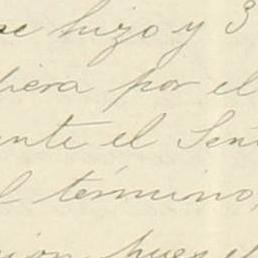 se hizo y 3
iera por el
ente el Sen
l término,
ion pues el